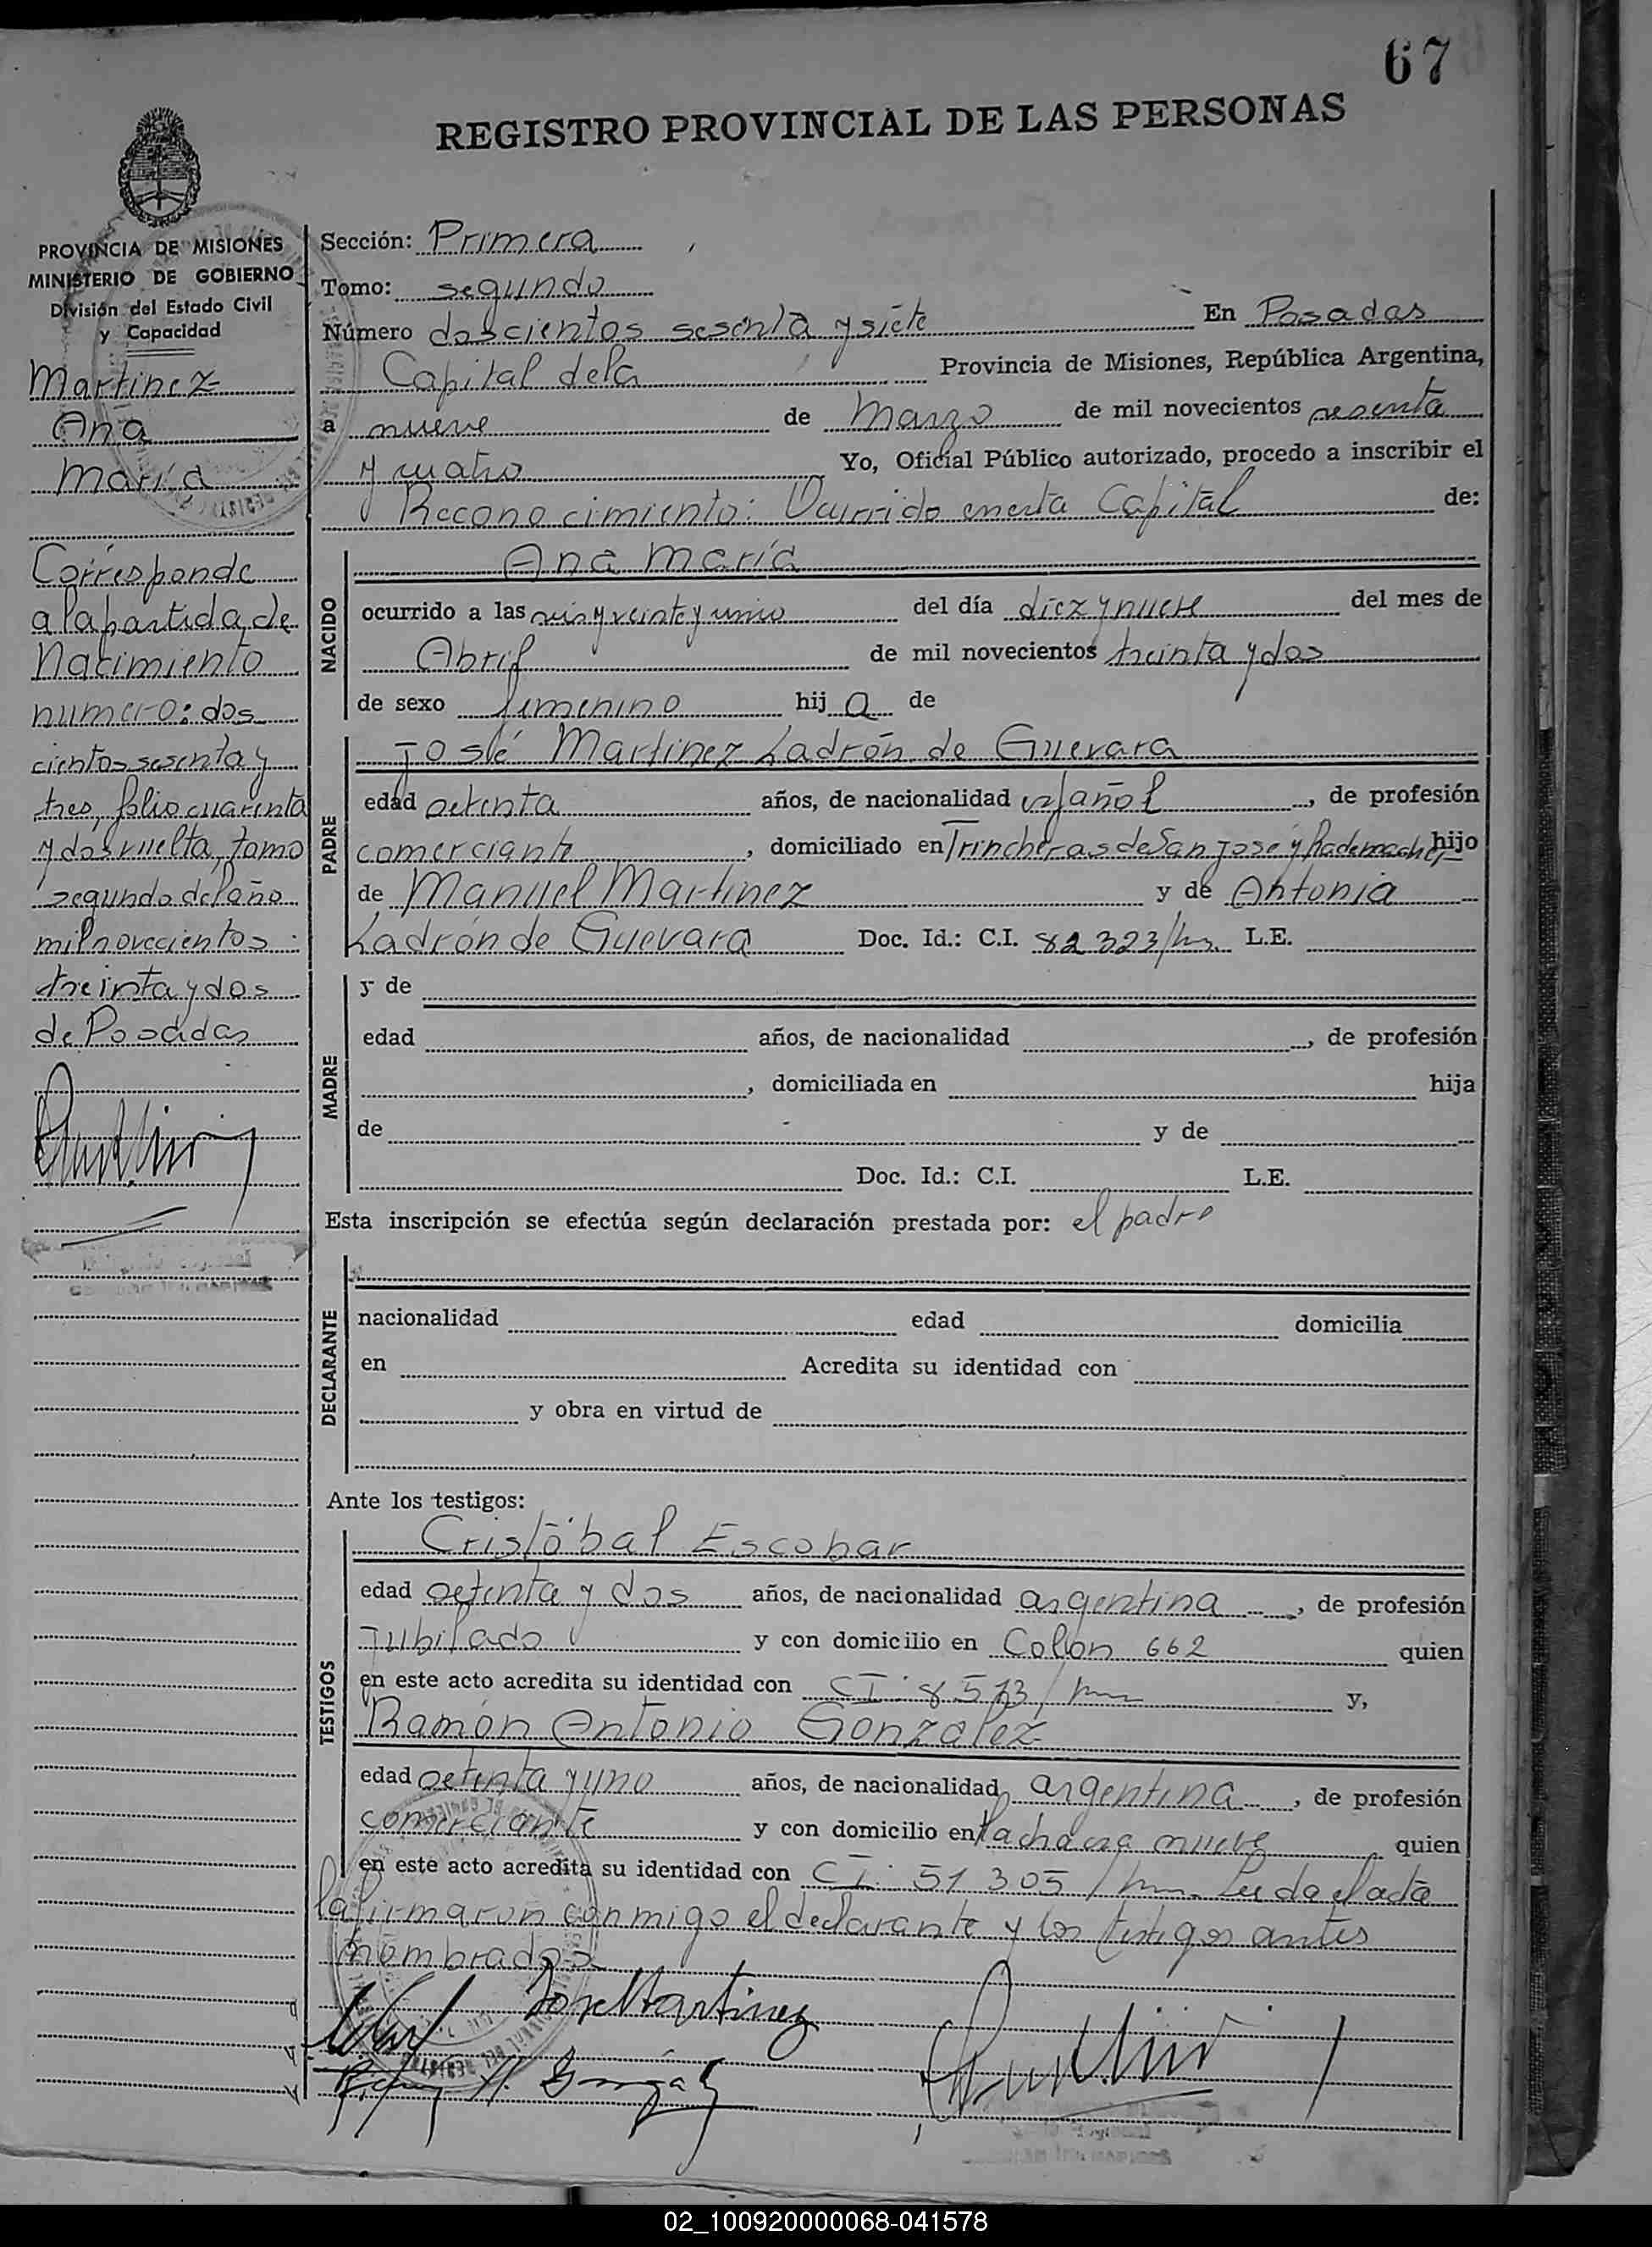 67
REGISTRO PROVINCIAL DE LAS PERSONAS
PROVINCIA DE MISIONES
MINISTERIO DE GOBIERNO
División del Estado Civil
y Capacidad
Martinez
Ana
María
Corresponde
a la partida de
Nacimiento
numero: dos
cientos sesenta y
tres, folio cuarenta
y dos vuelta, tomo
segundo del año
mil novecientos
treinta y dos
de Posadas
Sección: Primera
Tomo: segundo
Número doscientos sesenta y siete En Posadas
Capital de la Provincia de Misiones, República Argentina,
a nueve de Marzo de mil novecientos sesenta
y cuatro Yo, Oficial Público autorizado, procedo a inscribir el
Reconocimiento: Ocurrido en esta Capital de:
NACIDO
Ana María
ocurrido a las seis y veinte y uno del día diez y nueve del mes de
Abril de mil novecientos treinta y dos
de sexo femenino hija de
PADRE
José Martinez Ladrón de Guevara
edad setenta años, de nacionalidad español, de profesión
comerciante, domiciliado en Trincheras de San José y Rademacher hijo
de Manuel Martinez y de Antonia
Ladrón de Guevara Doc. Id.: C.I. 82 323/ L.E.
MADRE
y de
edad años, de nacionalidad , de profesión
, domiciliada en hija
de y de
Doc. Id.: C.I. L.E.
Esta inscripción se efectúa según declaración prestada por: el padre
DECLARANTE
nacionalidad edad domicilia
en Acredita su identidad con
y obra en virtud de
Ante los testigos:
TESTIGOS
Cristóbal Escobar
edad setenta y dos años, de nacionalidad argentina, de profesión
Jubilado y con domicilio en Colon 662 quien
en este acto acredita su identidad con CI. y,
Ramón Antonio Gonzalez
edad setenta y uno años, de nacionalidad argentina, de profesión
comerciante y con domicilio en chacra nueve quien
en este acto acredita su identidad con CI. 51 305/ Leida el acta
la firmaron conmigo el declarante y los testigos antes
nombrados
Jose Martinez
02_100920000068-041578